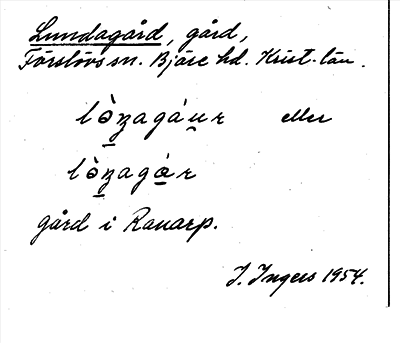 Lundagård, gård,
Förslövs sn. Bjäre hd. Krist. län.
lòn̠agáu̠r eller
lòn̠agá̠r
gård i Ranarp.
I. Ingers 1954.